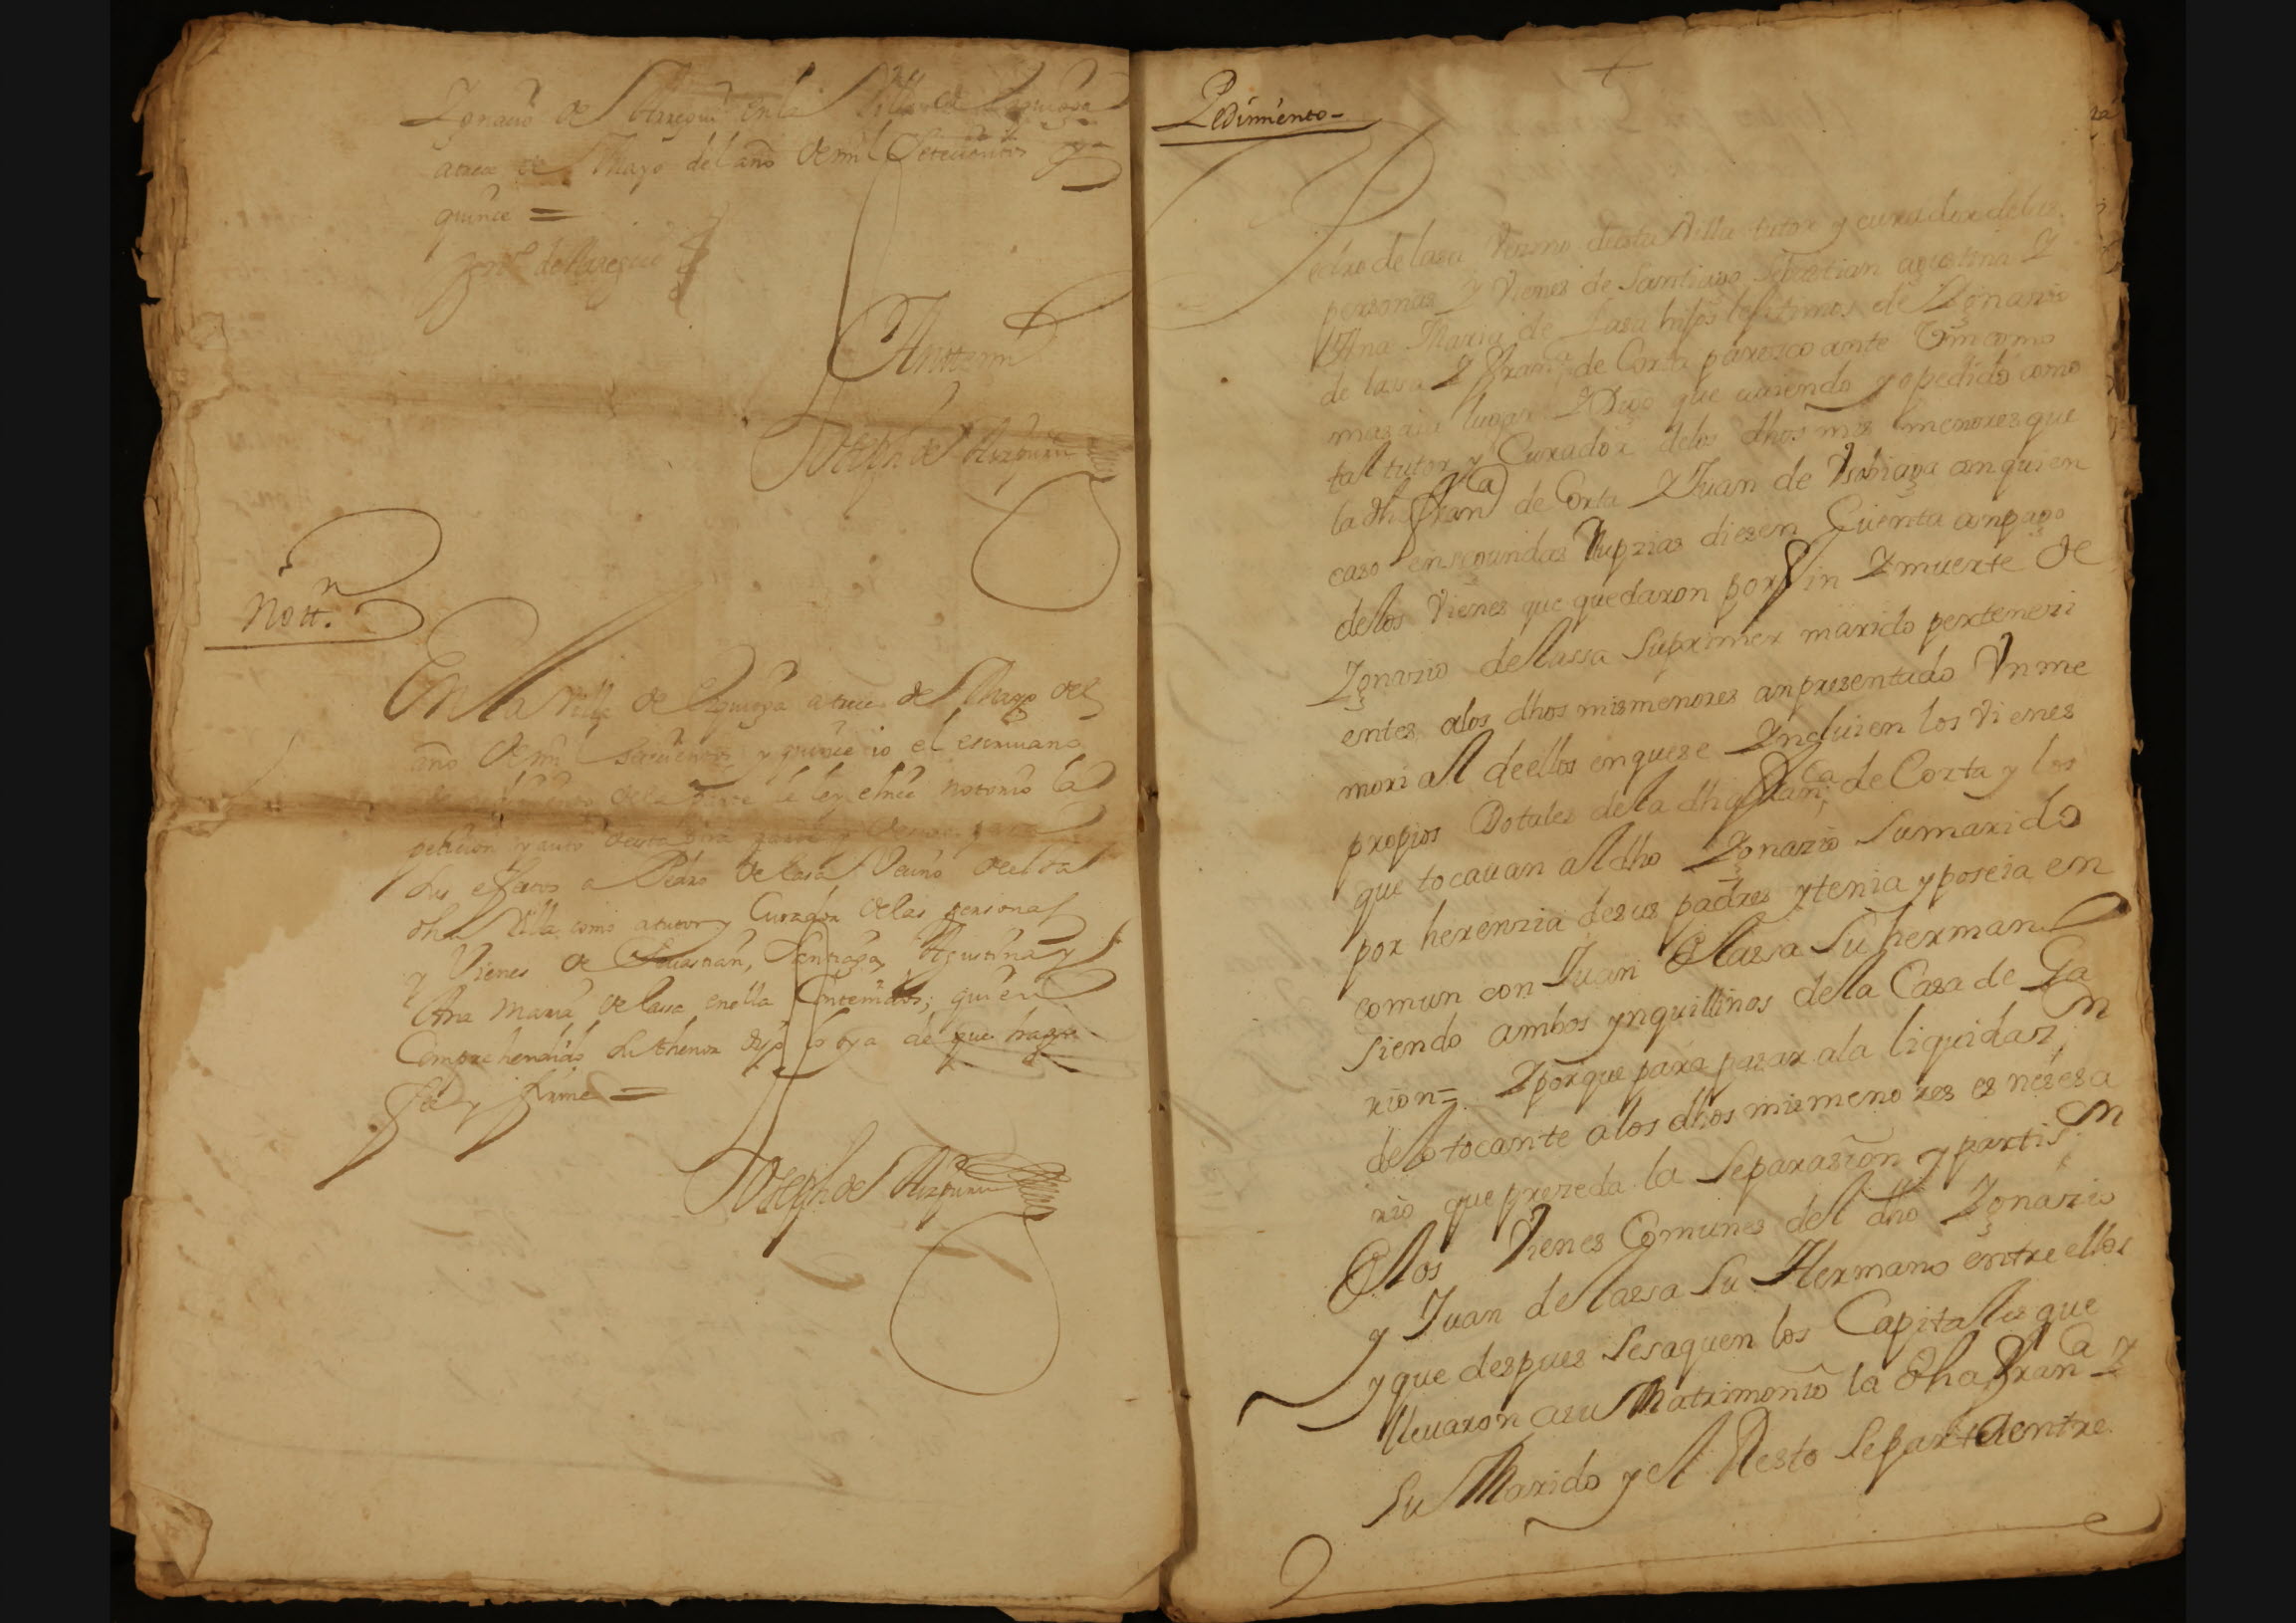 Ygnacio de en la Villa de
a trece de Mayo del año de mil Setecientos y
quinze =
Ante mi
Joseph de Aizpuru
Nott.n
En la Villa de a trece de Mayo del
año de mil Setecientos y quince io el escriuano
de la parte le ley e hice notorio la
peticion y auto desta otra parte para
sus efectos a Pedro de Lasa Vecino desta
dha Villa como a tutor y Curador de las personas
y Vienes de Seuastian, Santiago, Agustina y
Ana Maria de Lasa en ella Contenidos; quien
Comprehendido su thenor dijo lo oya de que hago
fee y firme =
Joseph de Aizpuru
Pedimiento -
Pedro de lasa Vezino desta Villa tutor y curador delas
personas Y Vienes de Santiago Sebastian agustina Y
Ana Maria de Lasa hijos lejitimos de Ygnazio
de lasa Y Fran.ca de Corta parezco ante Vm como
mas aia lugar Y Digo que auiendo yo pedido como
tal tutor y Curador delos dhos mis menores que
la dha Fran.ca de Corta Y Juan de Vsabiaga con quien
caso en segundas Nupzias diesen Cuenta con pago
delos Vienes que quedaron por fin Y muerte de
Ygnazio de lassa Su primer marido perteneci
entes alos dhos mis menores an presentado Vn me
morial de ellos en que se Yncluien los Vienes
propios Dotales de la dha Fran.ca de Corta y los
que tocauan al dho Ygnazio Su marido
por herenzia de sus padres y tenia y poseia en
comun con Juan de lassa Su hermano
siendo ambos ynquilinos dela Casa de Ga
rion = Y porque para pasar ala liquidaz.n
delo tocante alos dhos mis menores es nesesa
rio que prezeda la Separazion y partiz.n
de los Vienes Comunes del dho Ygnazio
y Juan de lassa Su Hermano entre ellos
y que despues se saquen los Capitales que
lleuaron a su Matrimonio la dha Fran.ca Y
Su Marido y el Resto Se parta entre